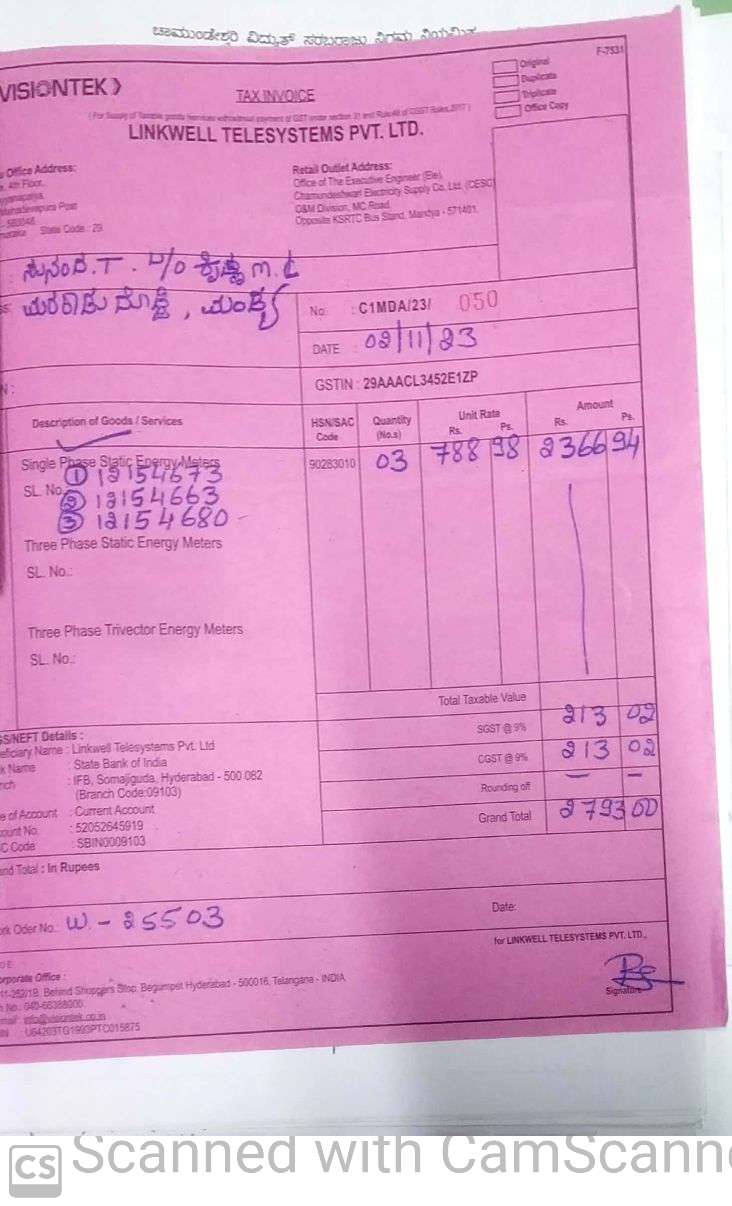 ಚಾಮುಂಡೇಶ್ವರಿ ವಿದ್ಯುತ್ ಸರಬರಾಜು ನಿಗಮ ನಿಯಮಿತ
F-7531
VISIONTEK
TAX INVOICE
Original
Duplicate
Triplicate
Office Copy
LINKWELL TELESYSTEMS PVT. LTD.
Office Address:
4th Floor,
State Code : 29
Retail Outlet Address:
Office of The Executive Engineer (Ele),
Chamundeshwari Electricity Supply Co. Ltd. (CESC)
O&M Division, MC Road,
Opposite KSRTC Bus Stand, Mandya - 571401.
ಸುನಂದ.T.
ಮಂಡ್ಯ
No. : C1MDA/23/ 050
DATE : 02/11/23
GSTIN : 29AAACL3452E1ZP
Description of Goods / Services
HSN/SAC Code
Quantity (No.s)
Unit Rate Rs. Ps.
Amount Rs. Ps.
Single Phase Static Energy Meters 90283010 03 788 98 2366 94
SL. No. ① 12154673
② 12154663
③ 12154680
Three Phase Static Energy Meters
SL. No.:
Three Phase Trivector Energy Meters
SL. No.:
Total Taxable Value
SGST @ 9% 213 02
CGST @ 9% 213 02
Rounding off — —
Grand Total 2793 00
GS/NEFT Details :
eficiary Name : Linkwell Telesystems Pvt. Ltd
k Name : State Bank of India
nch : IFB, Somajiguda, Hyderabad - 500 082
(Branch Code:09103)
e of Account : Current Account
ount No. : 52052645919
C Code : SBIN0009103
and Total : In Rupees
ork Oder No.: W - 25503
Date:
for LINKWELL TELESYSTEMS PVT. LTD.,
Signature
orporate Office :
11-252/1B, Behind Shoppers Stop, Begumpet Hyderabad - 500016, Telangana - INDIA
No.: 040-66388000
mail: info@visiontek.co.in
IN : U64203TG1993PTC015875
CS Scanned with CamScann